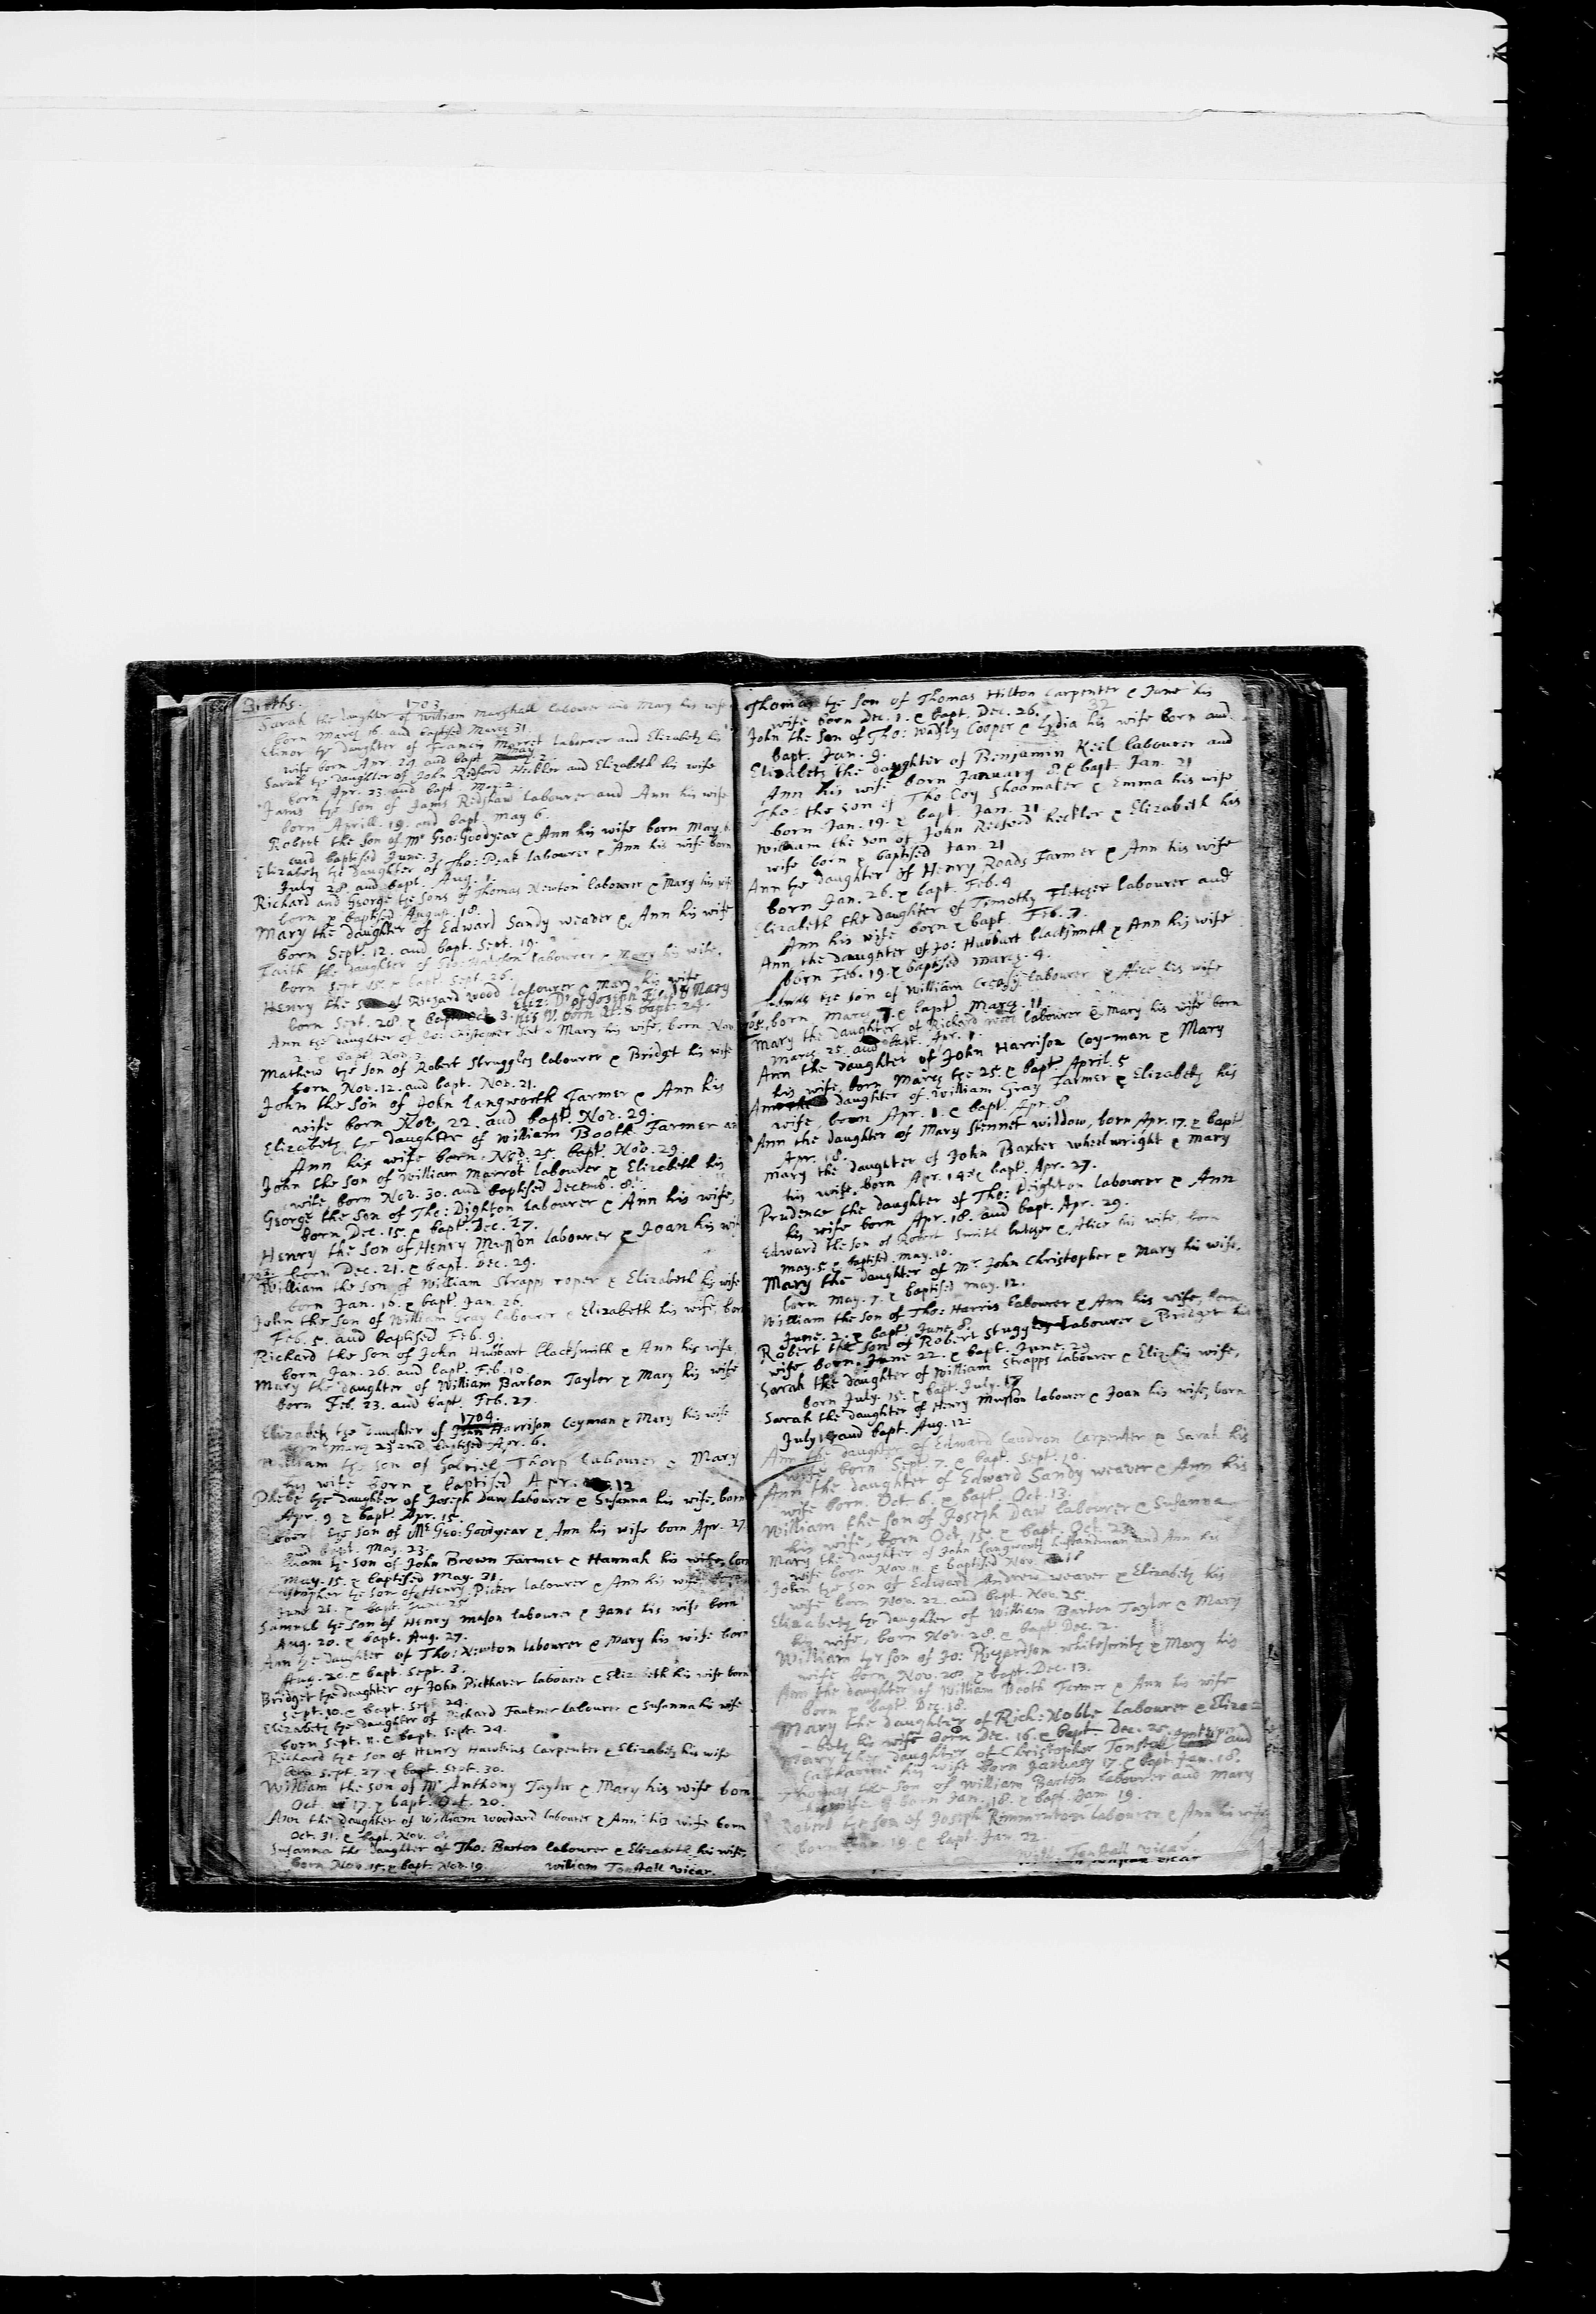 Births.
1703
Sarah the daughter of William Marshall labourer and Mary his wife
born March 16. and baptised March 31.
Elinor the daughter of Francis Marret labourer and Elizabeth his
wife born Apr. 24 and bapt May
Sarah the daughter of John Redford Heckler and Elizabeth his wife
born Apr. 23. and bapt. May. 2.
James the son of James Redshaw labourer and Ann his wife
born Aprill. 19. and bapt. May 6.
Robert the son of Mr Geo: Goodyear & Ann his wife born May. 6
and baptised June. 3.
Elizabeth the daughter of Tho: Peak labourer & Ann his wife born
July 28. and bapt. Aug. 1.
Richard and George the sons of Thomas Newton labourer & Mary his wife
born & baptised August. 18.
Mary the daughter of Edward Sandy weaver & Ann his wife
born Sept. 12. and bapt. Sept. 19.
Faith the daughter of Geo: labourer & Mary his wife,
born Sept 15. & bapt. Sept. 26.
Henry the son of Richard Wood labourer & Mary his wife
born Sept. 28. & bapt. Oct. 3. Eliz: D. of Joseph & Mary
his W. born Oct: bapt. 24.
Ann the daughter of Jo: & Mary his wife, born Nov.
2. & bapt. Nov. 3
Mathew the son of Robert Struggles labourer & Bridget his wife
born Nov. 12. and bapt. Nov. 21.
John the son of John Langworth Farmer & Ann his
wife born Nov. 22. and bapt. Nov. 29.
Elizabeth the daughter of William Booth Farmer an
Ann his wife born. Nov. 25. bapt. Nov. 29.
John the son of William Marrot labourer & Elizabeth his
wife born Nov. 30. and baptised Decemb. 8.
George the son of Tho: Dighton labourer & Ann his wife,
born Dec. 15. & bapt. Dec. 27.
Henry the son of Henry Musson labourer & Joan his wif
born Dec. 21. & bapt. Dec. 29.
William the son of William Strapps roper & Elizabeth his wife
born Jan. 16. & bapt. Jan. 26.
John the son of William Gray labourer & Elizabeth his wife, born
Feb. 5. and baptised Feb. 9.
Richard the son of John Hubbart blacksmith & Ann his wife,
born Jan. 26. and bapt. Feb. 10
Mary the daughter of William Barton Taylor & Mary his wife
born Feb. 23. and bapt. Feb. 27.
1704.
Elizabeth the daughter of John Harrison Coyman & Mary his wife
born March 23 and baptised Apr. 6.
William the son of Gabriel Thorp Labourer & Mary
his wife born & baptised Apr. 12
Phebe the daughter of Joseph Daw labourer & Susanna his wife, born
Apr. 9 & bapt. Apr. 15.
Robert the son of Mr Geo: Goodyear & Ann his wife born Apr. 27.
and bapt. May. 23.
William the son of John Brown Farmer & Hannah his wife, born
May. 15. & baptised May. 31.
Christopher the son of Henry Picker labourer & Ann his wife, born
June 21. & bapt. June 25
Samuel the son of Henry Mason labourer & Jane his wife born
Aug. 20. & bapt. Aug. 27.
Ann the daughter of Tho: Newton labourer & Mary his wife born
Aug. 20. & bapt. Sept. 3.
Bridget the daughter of John Pickhaver labourer & Elizabeth his wife born
Sept. 10. & bapt. Sept. 24.
Elizabeth the daughter of Richard Faukner labourer & Susanna his wife
born Sept. 11. & bapt. Sept. 24.
Richard the son of Henry Hawkins Carpenter & Elizabeth his wife
born Sept. 27. & bapt. Sept. 30.
William the son of Mr Anthony Taylor & Mary his wife born
Oct. 17. & bapt. Oct. 20.
Ann the daughter of William Woodard labourer & Ann his wife born
Oct. 31. & bapt. Nov.
Susanna the daughter of Tho: Burton labourer & Elizabeth his wife,
born Nov. 15. & bapt. Nov. 19
William Tonstall Vicar.
32
Thomas the son of Thomas Hilton Carpenter & June his
wife born Dec. 1. & bapt. Dec. 26.
John the Son of Tho: Wadsly Cooper & Lydia his wife born and
bapt. Jan. 9.
Elizabeth the daughter of Benjamin Keil labourer and
Ann his wife born January 8. & bapt. Jan. 21
Tho: the son of Tho Coy Shoomaker & Emma his wife
born Jan. 19. & bapt. Jan. 21
William the son of John Redford heckler & Elizabeth his
wife born & baptised Jan. 21
Ann the daughter of Henry Roads Farmer & Ann his wife
born Jan. 26. & bapt. Feb. 4
Elizabeth the daughter of Timothy Fletcher labourer and
Ann his wife born & bapt. Feb. 7.
Ann the daughter of Jo: Hubbart blacksmith & Ann his wife
born Feb. 19. & baptised March. 4.
Thomas the son of William Creasy labourer & Alice his wife
born March 7. & bapt. March. 11
1705.
Mary the daughter of Richard labourer & Mary his wife born
March 25. and bapt. Apr. 1
Ann the daughter of John Harrison Coy-man & Mary
his wife, born March the 25. & bapt. April. 5
daughter of William Gray Farmer & Elizabeth his
wife, born Apr. 1. & bapt. Apr. 8
Ann the daughter of Mary Stennet widdow, born Apr. 17. & bapt
Apr. 18.
Mary the daughter of John Baxter wheelwright & Mary
his wife. born Apr. 14. & bapt. Apr. 27.
Prudence the daughter of Tho: Deighton labourer & Ann
his wife born Apr. 18. and bapt. Apr. 29.
Edward the son of Robert Smith butcher & Alice his wife, born
May. 5. & baptised May. 10.
Mary the daughter of Mr John Christopher & Mary his wife.
born May. 7. & baptised May. 12.
William the son of Tho: Harris labourer & Ann his wife, born
June. 2. & bapt. June. 8.
Robert the son of Robert Stuggles labourer & Bridget his
wife, born. June 22. & bapt. June. 29
Sarah the daughter of William Strapps labourer & Eliz. his wife,
born July. 15. & bapt. July. 17
Sarah the daughter of Henry Musson labourer & Joan his wife, born
July and bapt. Aug. 12.
Ann the daughter of Edward Caudron Carpenter & Sarah his
wife born Sept. 7. & bapt. Sept. 10.
Ann the daughter of Edward Sandy weaver & Ann his
wife born. Oct. 6. & bapt. Oct. 13.
William the son of Joseph Daw labourer & Susanna
his wife, born Oct. 15. & bapt. Oct. 23.
Mary the daughter of John Langworth husbandman and Ann his
wife born Nov. 11. & baptised Nov. 18
John the son of Edward Andrew weaver & Elizabeth his
wife born Nov. 22. and bapt. Nov. 25.
Elizabeth the daughter of William Barton Taylor & Mary
his wife, born Nov. 28. & bapt. Dec. 2.
William the son of Jo: Richardson whitesmith & Mary his
wife born Nov. 20. & bapt. Dec. 13.
Ann the daughter of William Booth Farmer & Ann his wife
born & bapt. Dec. 18.
Mary the daughter of Rich: Noble Labourer & Eliza=
-beth his wife born Dec. 16. & bapt. Dec. 25.
Mary the daughter of Christopher Tonstal and
Catharine his wife born January 17 & bapt. Jan. 18.
Thomas the son of William Barton labourer and Mary
his wife born Jan. 18. & bapt. Jan. 19.
Robert the son of Joseph Rimmington labourer & Ann his wife
born Jan. 19. & bapt. Jan. 22.
Will: Tonstall Vicar